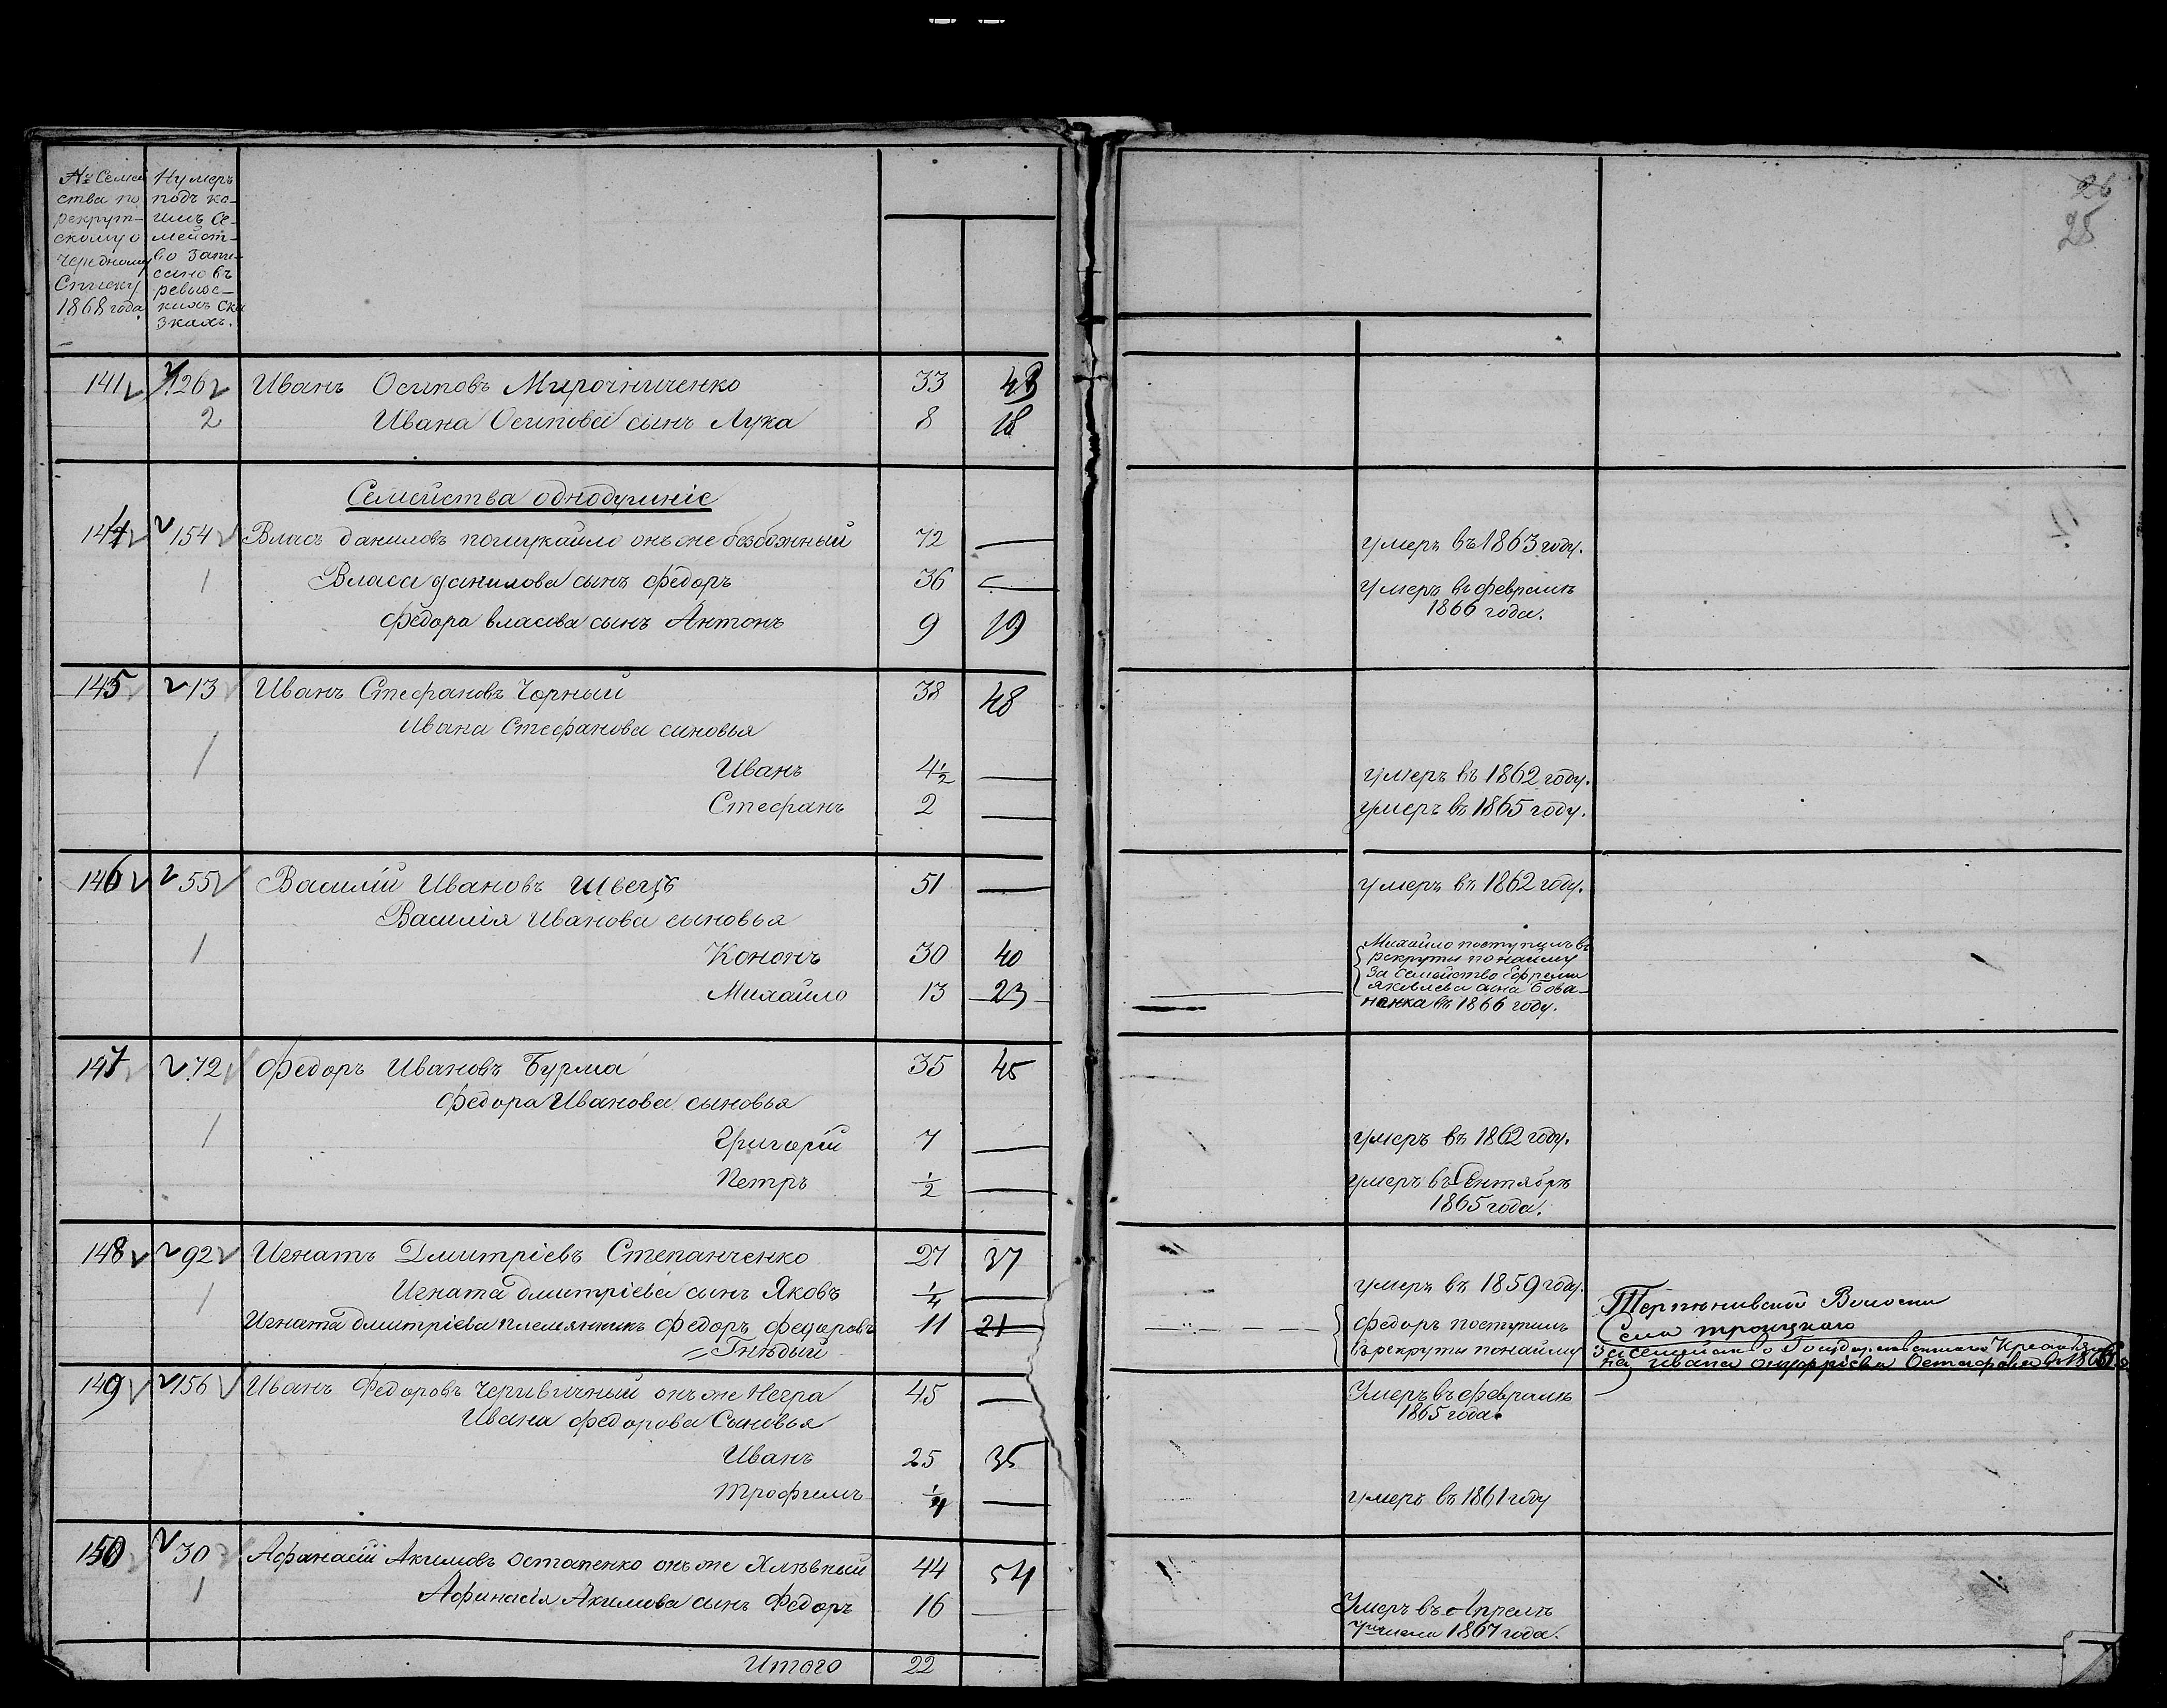 № Семей
ства по
рекрут-
скому о
чередному
Списку
1868 года
Нумеръ
подъ ко-
имъ Се-
мейст-
во запи-
сано въ
ревизс-
кихъ Ска
зкахъ.
26
25
141 126 Иванъ Осиповъ Мирочниченко 33 43
2 Ивана Осипова сынъ Лука 8 18
Семейства однодушніе
144 154 Власъ Даниловъ пошукайло онъ же безбожный 72 — умеръ въ 1863 году.
1 Власа данилова сынъ Федоръ 36 — умеръ въ февралѣ
1866 года.
Федора власова сынъ Антонъ 9 19
145 13 Иванъ Стефановъ Чорный 38 48
Ивана Стефанова сыновья
1 Иванъ 4½ — умеръ въ 1862 году.
Стефанъ 2 — умеръ въ 1865 году.
146 55 Василій Ивановъ Швецъ 51 — умеръ въ 1862 году.
Василія Иванова сыновья
1 Кононъ 30 40
Михайло 13 23
Михайло поступилъ въ
рекруты по найму
за семейство Ефрема
яковлева сына Бова-
ненка въ 1866 году.
147 72 Федоръ Ивановъ Бурма 35 45
Федора Иванова сыновья
1 Григорій 7 — умеръ въ 1862 году.
Петръ ½ — умеръ въ Сентябрѣ
1865 года.
148 92 Игнатъ Дмитріевъ Степанченко 27 37
1 Игната Дмитріева сынъ Яковъ ¼ — умеръ въ 1859 году.
Игната Дмитріева племянникъ Федоръ Федоровъ 11 21 Федоръ поступилъ
Гнѣдый въ рекруты по найму
Терпѣнивской Волости
Села троицкаго
за семейство Государственнаго Крестьяни
на Ивана
149 156 Иванъ Федоровъ Черивичный онъ же Негра 45 — Умеръ въ февралѣ
1865 года.
Ивана Федорова Сыновья
Иванъ 25 35
Трофимъ ¼ — умеръ въ 1861 году
150 30 Афанасій Акимовъ Остапенко онъ же Хлѣвный 44 54
1 Афанасія Акимова сынъ Федоръ 16 — Умеръ въ Апрелѣ
числа 1867 года.
Итого 22